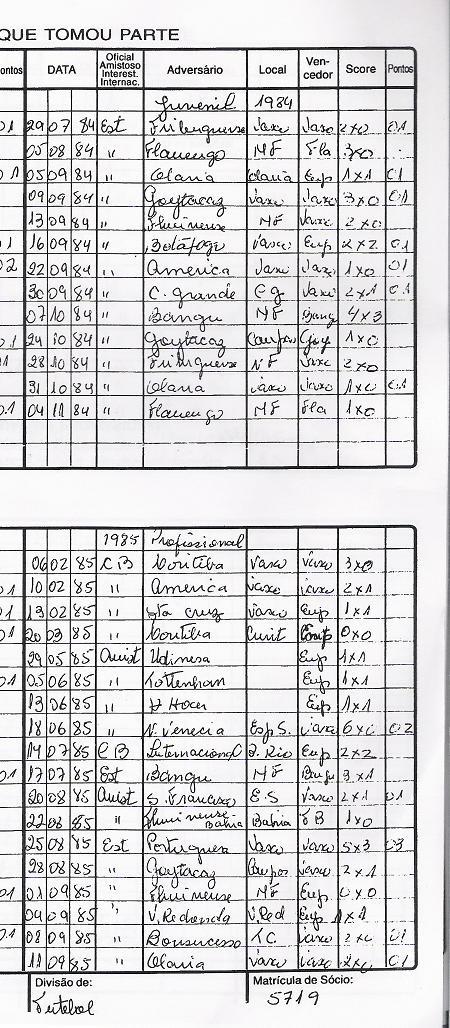 QUE TOMOU PARTE
Pontos DATA Oficial Amistoso Interest. Internac. Adversário Local Ven-cedor Score Pontos
Juvenil 1984
01 29 07 84 Est Friburguense Vasco Vasco 2x0 01
05 08 84 " Flamengo NF Fla 3x0 -
01 05 09 84 " Olaria Olaria Emp 1x1 01
09 09 84 " Goytacaz Vasco Vasco 3x0 01
13 09 84 " Fluminense NF Vasco 2x0
01 16 09 84 " Botafogo Vasco Emp 2x2 01
02 22 09 84 " America Vasco Vasco 1x0 01
30 09 84 " C. Grande CG Vasco 2x1 01
07 10 84 " Bangu NF Bang 4x3
01 24 10 84 " Goytacaz Campos Goy 1x0
01 28 10 84 " Friburguense NF Vasc 2x0
31 10 84 " Olaria Vasco Vasco 1x0 01
01 04 11 84 " Flamengo NF Fla 1x0
1985 Profissional
06 02 85 CB Coritiba Vasco Vasco 3x0
01 10 02 85 " America Vasco Vasco 2x1
01 13 02 85 " Sta Cruz Vasco Emp 1x1
01 20 03 85 " Coritiba Curit Emp 0x0
29 05 85 Amist Udinesa Emp 1x1
01 05 06 85 " Tottenham Emp 1x1
13 06 85 " Emp 1x1
18 06 85 " N. Venecia Esp S. Vasco 6x0 02
14 07 85 CB Internacional Rio Emp 2x2
01 17 07 85 Est Bangu NF Bangu 3x1
20 08 85 Amist S. Francisco E.S Vasco 2x1 01
22 08 85 " Fluminense Bahia Bahia FB 1x0
25 08 85 Est Portuguesa Vasco Vasco 5x3 03
28 08 85 " Goytacaz Campos Vasco 2x1
01 01 09 85 " Fluminense NF Emp 0x0
04 09 85 " V. Redonda V. Red Emp 1x1
01 08 09 85 " Bonsucesso T.C. Vasco 2x0 01
11 09 85 " Olaria Vasco Vasco 2x0 01
Divisão de: Matrícula de Sócio:
Futebol 5719